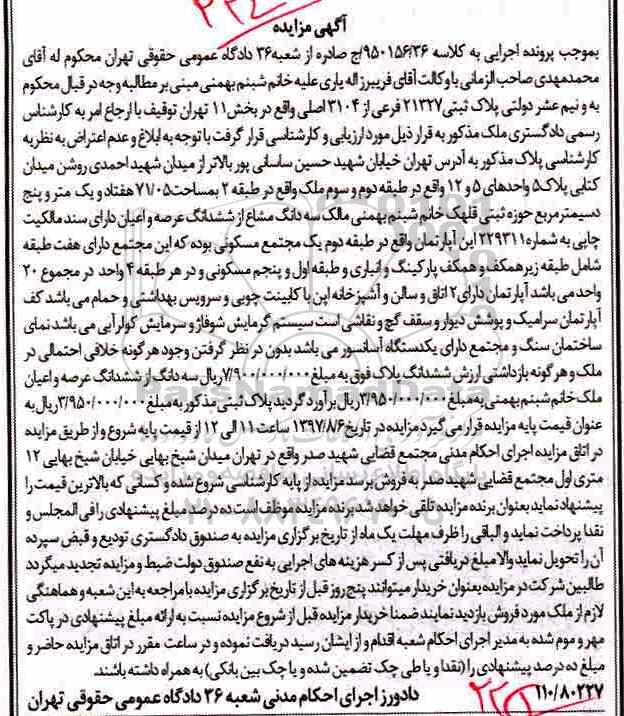 آگهی مزایده
بموجب پرونده اجرایی به کلاسه ۹۵۰۱۵۶/۳۶/ج صادره از شعبه ۳۶ دادگاه عمومی حقوقی تهران محکوم له آقای
محمدمهدی صاحب الزمانی با وکالت آقای فریبرز اله یاری علیه خانم شبنم بهمنی مبنی بر مطالبه وجه در قبال محکوم
به و نیم عشر دولتی پلاک ثبتی ۲۱۳۲۷ فرعی از ۳۱۰۴ اصلی واقع در بخش ۱۱ تهران توقیف با ارجاع امر به کارشناس
رسمی دادگستری ملک مذکور به قرار ذیل مورد ارزیابی و کارشناسی قرار گرفت با توجه به ابلاغ و عدم اعتراض به نظریه
کارشناسی پلاک مذکور به آدرس تهران خیابان شهید حسین ساسانی پور بالاتر از میدان شهید احمدی روشن میدان
کتابی پلاک ۵ واحدهای ۵ و ۱۲ واقع در طبقه دوم و سوم ملک واقع در طبقه ۲ بمساحت ۷۱/۰۵ هفتاد و یک متر و پنج
دسیمتر مربع حوزه ثبتی قلهک خانم شبنم بهمنی مالک سه دانگ مشاع از ششدانگ عرصه و اعیان دارای سند مالکیت
چاپی به شماره ۲۲۹۳۱۱ این آپارتمان واقع در طبقه دوم یک مجتمع مسکونی بوده که این مجتمع دارای هفت طبقه
شامل طبقه زیر همکف و همکف پارکینگ و انباری و طبقه اول و پنجم مسکونی و در هر طبقه ۴ واحد در مجموع ۲۰
واحد می باشد آپارتمان دارای ۲ اتاق و سالن و آشپزخانه اپن با کابینت چوبی و سرویس بهداشتی و حمام می باشد کف
آپارتمان سرامیک و پوشش دیوار و سقف گچ و نقاشی است سیستم گرمایش شوفاژ و سرمایش کولر آبی می باشد نمای
ساختمان سنگ و مجتمع دارای یکدستگاه آسانسور می باشد بدون در نظر گرفتن وجود هر گونه خلافی احتمالی در
ملک و هر گونه بازداشتی ارزش ششدانگ پلاک فوق به مبلغ ۷/۹۰۰/۰۰۰/۰۰۰ ریال سه دانگ از ششدانگ عرصه و اعیان
ملک خانم شبنم بهمنی به مبلغ ۳/۹۵۰/۰۰۰/۰۰۰ ریال برآورد گردید پلاک ثبتی مذکور به مبلغ ۳/۹۵۰/۰۰۰/۰۰۰ ریال به
عنوان قیمت پایه مزایده قرار می گیرد مزایده در تاریخ ۱۳۹۷/۸/۶ ساعت ۱۱ الی ۱۲ از قیمت پایه شروع و از طریق مزایده
در اتاق مزایده اجرای احکام مدنی مجتمع قضایی شهید صدر واقع در تهران میدان شیخ بهایی خیابان شیخ بهایی ۱۲
متری اول مجتمع قضایی شهید صدر به فروش برسد مزایده از پایه کارشناسی شروع شده و کسانی که بالاترین قیمت را
پیشنهاد نماید بعنوان برنده مزایده تلقی خواهد شد برنده مزایده موظف است ده درصد مبلغ پیشنهادی را فی المجلس و
نقدا پرداخت نماید و الباقی را ظرف مهلت یک ماه از تاریخ برگزاری مزایده به صندوق دادگستری تودیع و قبض سپرده
آن را تحویل نماید والا مبلغ دریافتی پس از کسر هزینه های اجرایی به نفع صندوق دولت ضبط و مزایده تجدید میگردد
طالبین شرکت در مزایده بعنوان خریدار میتوانند پنج روز قبل از تاریخ برگزاری مزایده با مراجعه به این شعبه و هماهنگی
لازم از ملک مورد فروش بازدید نمایند ضمنا خریدار مزایده قبل از شروع مزایده نسبت به ارائه مبلغ پیشنهادی در پاکت
مهر و موم شده به مدیر اجرای احکام شعبه اقدام و از ایشان رسید دریافت نموده و در ساعت مقرر در اتاق مزایده حاضر و
مبلغ ده درصد پیشنهادی را (نقدا و یا طی چک تضمین شده و یا چک بین بانکی) به همراه داشته باشند.
۱۱۰/۸۰۲۲۷ دادورز اجرای احکام مدنی شعبه ۳۶ دادگاه عمومی حقوقی تهران